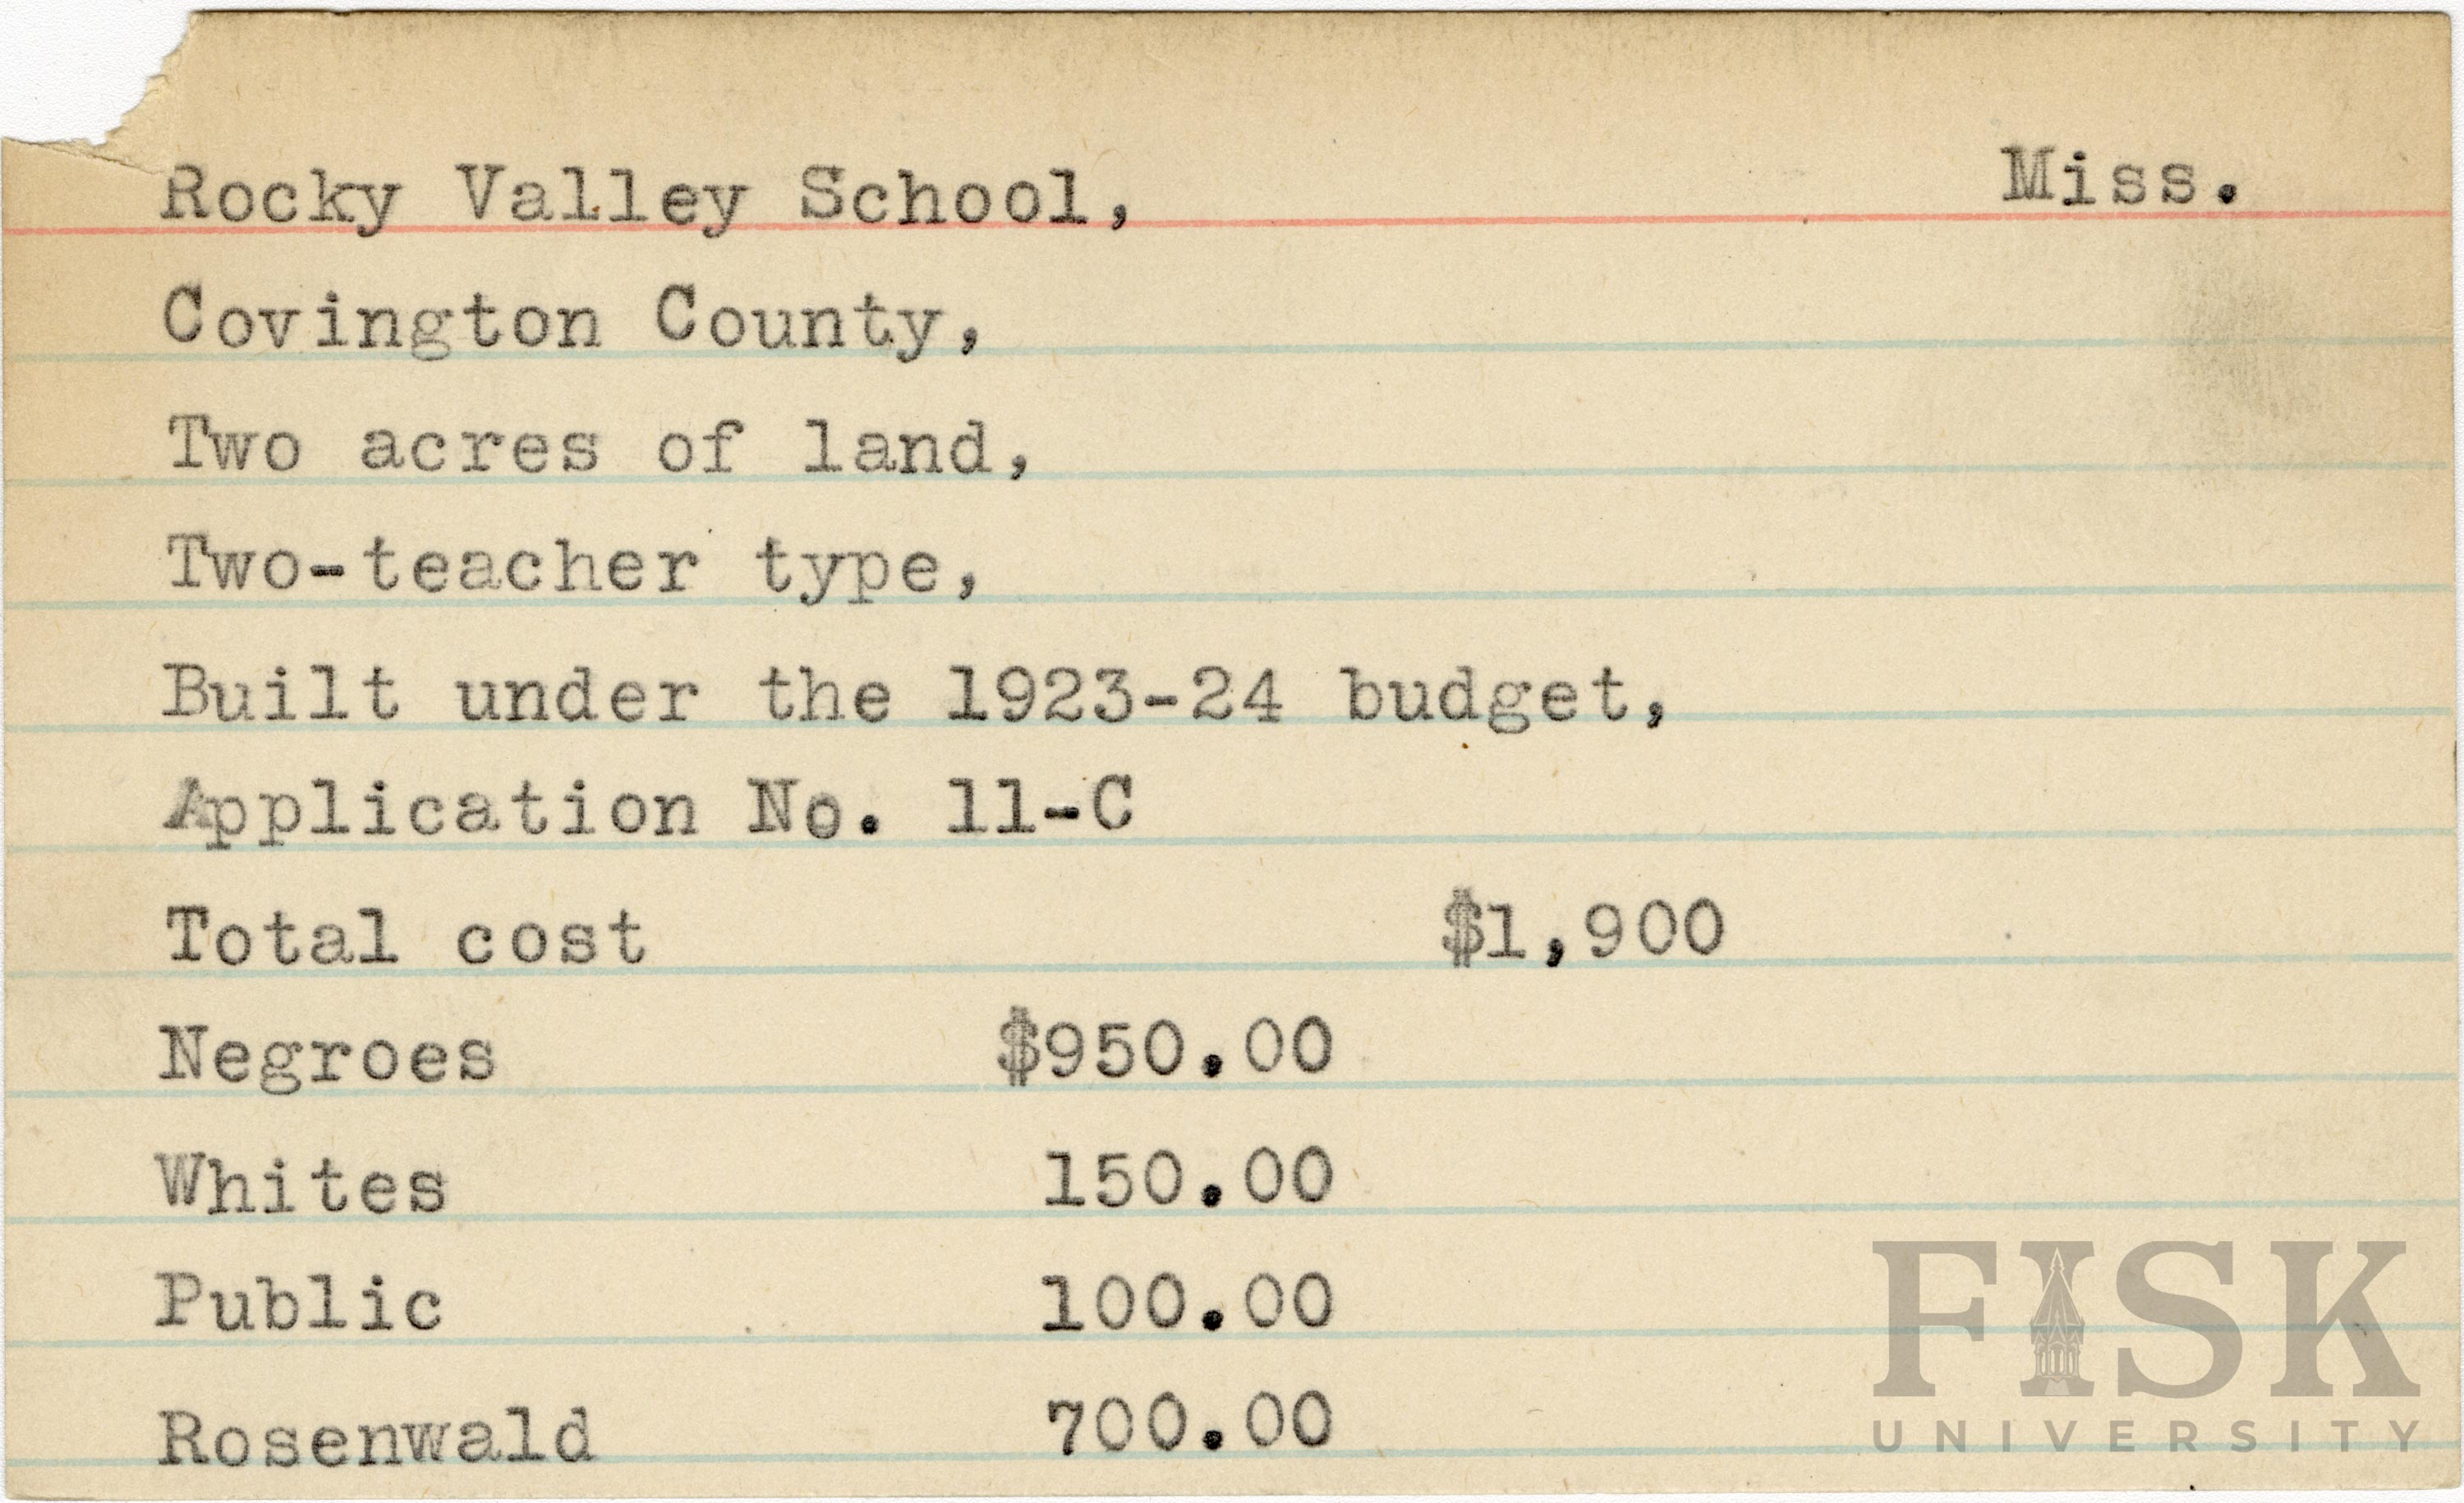 Rocky Valley School, Miss.
Covington County,
Two acres of land,
Two-teacher type,
Built under the 1923-24 budget,
Application No. 11-C
Total cost $1,900
Negroes $950.00
Whites 150.00
Public 100.00
Rosenwald 700.00
FISK
UNIVERSITY